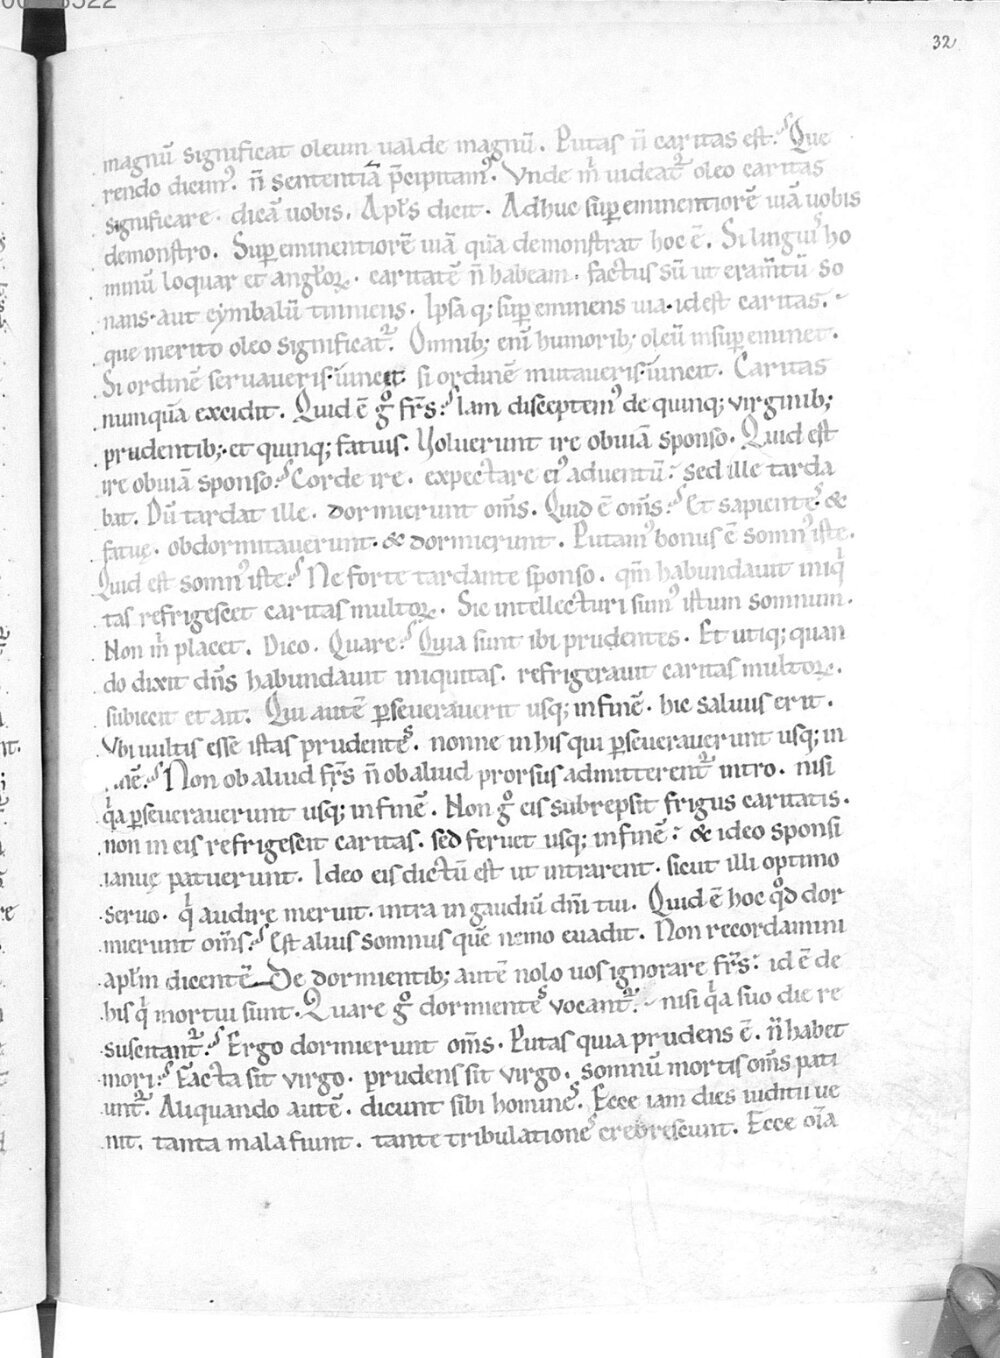 32
magnū significat oleum ualde magnū. Putas ñ caritas est? Que
rendo dicimꝰ. ñ sententiā p̄cipitamꝰ. Vnde m̄ uideat᷑ oleo caritas
significare. dicā uobis. Apl̄s dicit. Adhuc suꝑeminentiorē uiā uobis
demonstro. Suꝑeminentiorē uiā quā demonstrat hoc ē. Si linguis ho
minū loquar et angl̄oꝝ. caritatē ñ habeam. factus sū ut eram̄tū so
nans. aut cymbalū tinniens. Ipsa q; suꝑeminens uia. id est caritas.
que merito oleo significat᷑. Omnib; enī humorib; oleū insuꝑeminet.
Si ordinē seruaueris. uincit si ordinē mutaueris. uincit. Caritas
numquā excidit. Quid ē gͦ fr̄s? Iam disceptemꝰ de quinq; virginib;
prudentib;. et quinq; fatuis. Voluerunt ire obuiā sponso. Quid est
ire obuiā sponso? Corde ire. expectare eiꝰ aduentū. sed ille tarda
bat. Dū tardat ille. dormierunt om̄s. Quid ē om̄s? Et sapientes. &
fatuę. obdormitauerunt. & dormierunt. Putamꝰ bonus ē somnꝰ iste.
Quid est somnꝰ iste? Ne forte tardante sponso. qm̄ habundauit iniqͥ
tas refrigescet caritas multoꝝ. Sic intellecturi sumꝰ istum somnum.
Non m̄ placet. Dico. Quare? Quia sunt ibi prudentes. Et utiq; quan
do dixit dn̄s habundauit iniquitas. refrigerauit caritas multoꝝ.
subiecit et ait. Qui autē ꝑseuerauerit usq; in finē. hic saluus erit.
Vbi uultis esse istas prudentes. nonne in his qui ꝑseuerauerunt usq; in
nē? Non ob aliud fr̄s ñ ob aliud prorsus admitterent᷑ intro. nisi
qͥa ꝑseuerauerunt usq; in finē. Non gͦ eis subrepsit frigus caritatis.
non in eis refrigescit caritas. sed feruet usq; in finē. & ideo sponsi
ianuę patuerunt. Ideo eis dictū est ut intrarent. sicut illi optimo
seruo. qͥ audire meruit. intra in gaudiū dn̄i tui. Quid ē hoc qͦd dor
mierunt om̄s? Est alius somnus quē nemo euadit. Non recordamini
apl̄m dicentē De dormientib; autē nolo uos ignorare fr̄s. id ē de
his qͥ mortui sunt. Quare gͦ dormientes vocant᷑. nisi qͥa suo die re
suscitant᷑? Ergo dormierunt om̄s. Putas quia prudens ē. ñ habet
mori? Facta sit virgo. prudens sit virgo. somnū mortis om̄s pati
unt᷑. Aliquando autē. dicunt sibi homines. Ecce iam dies iuditii ue
nit. tanta mala fiunt. tante tribulationes crebrescunt. Ecce oīa